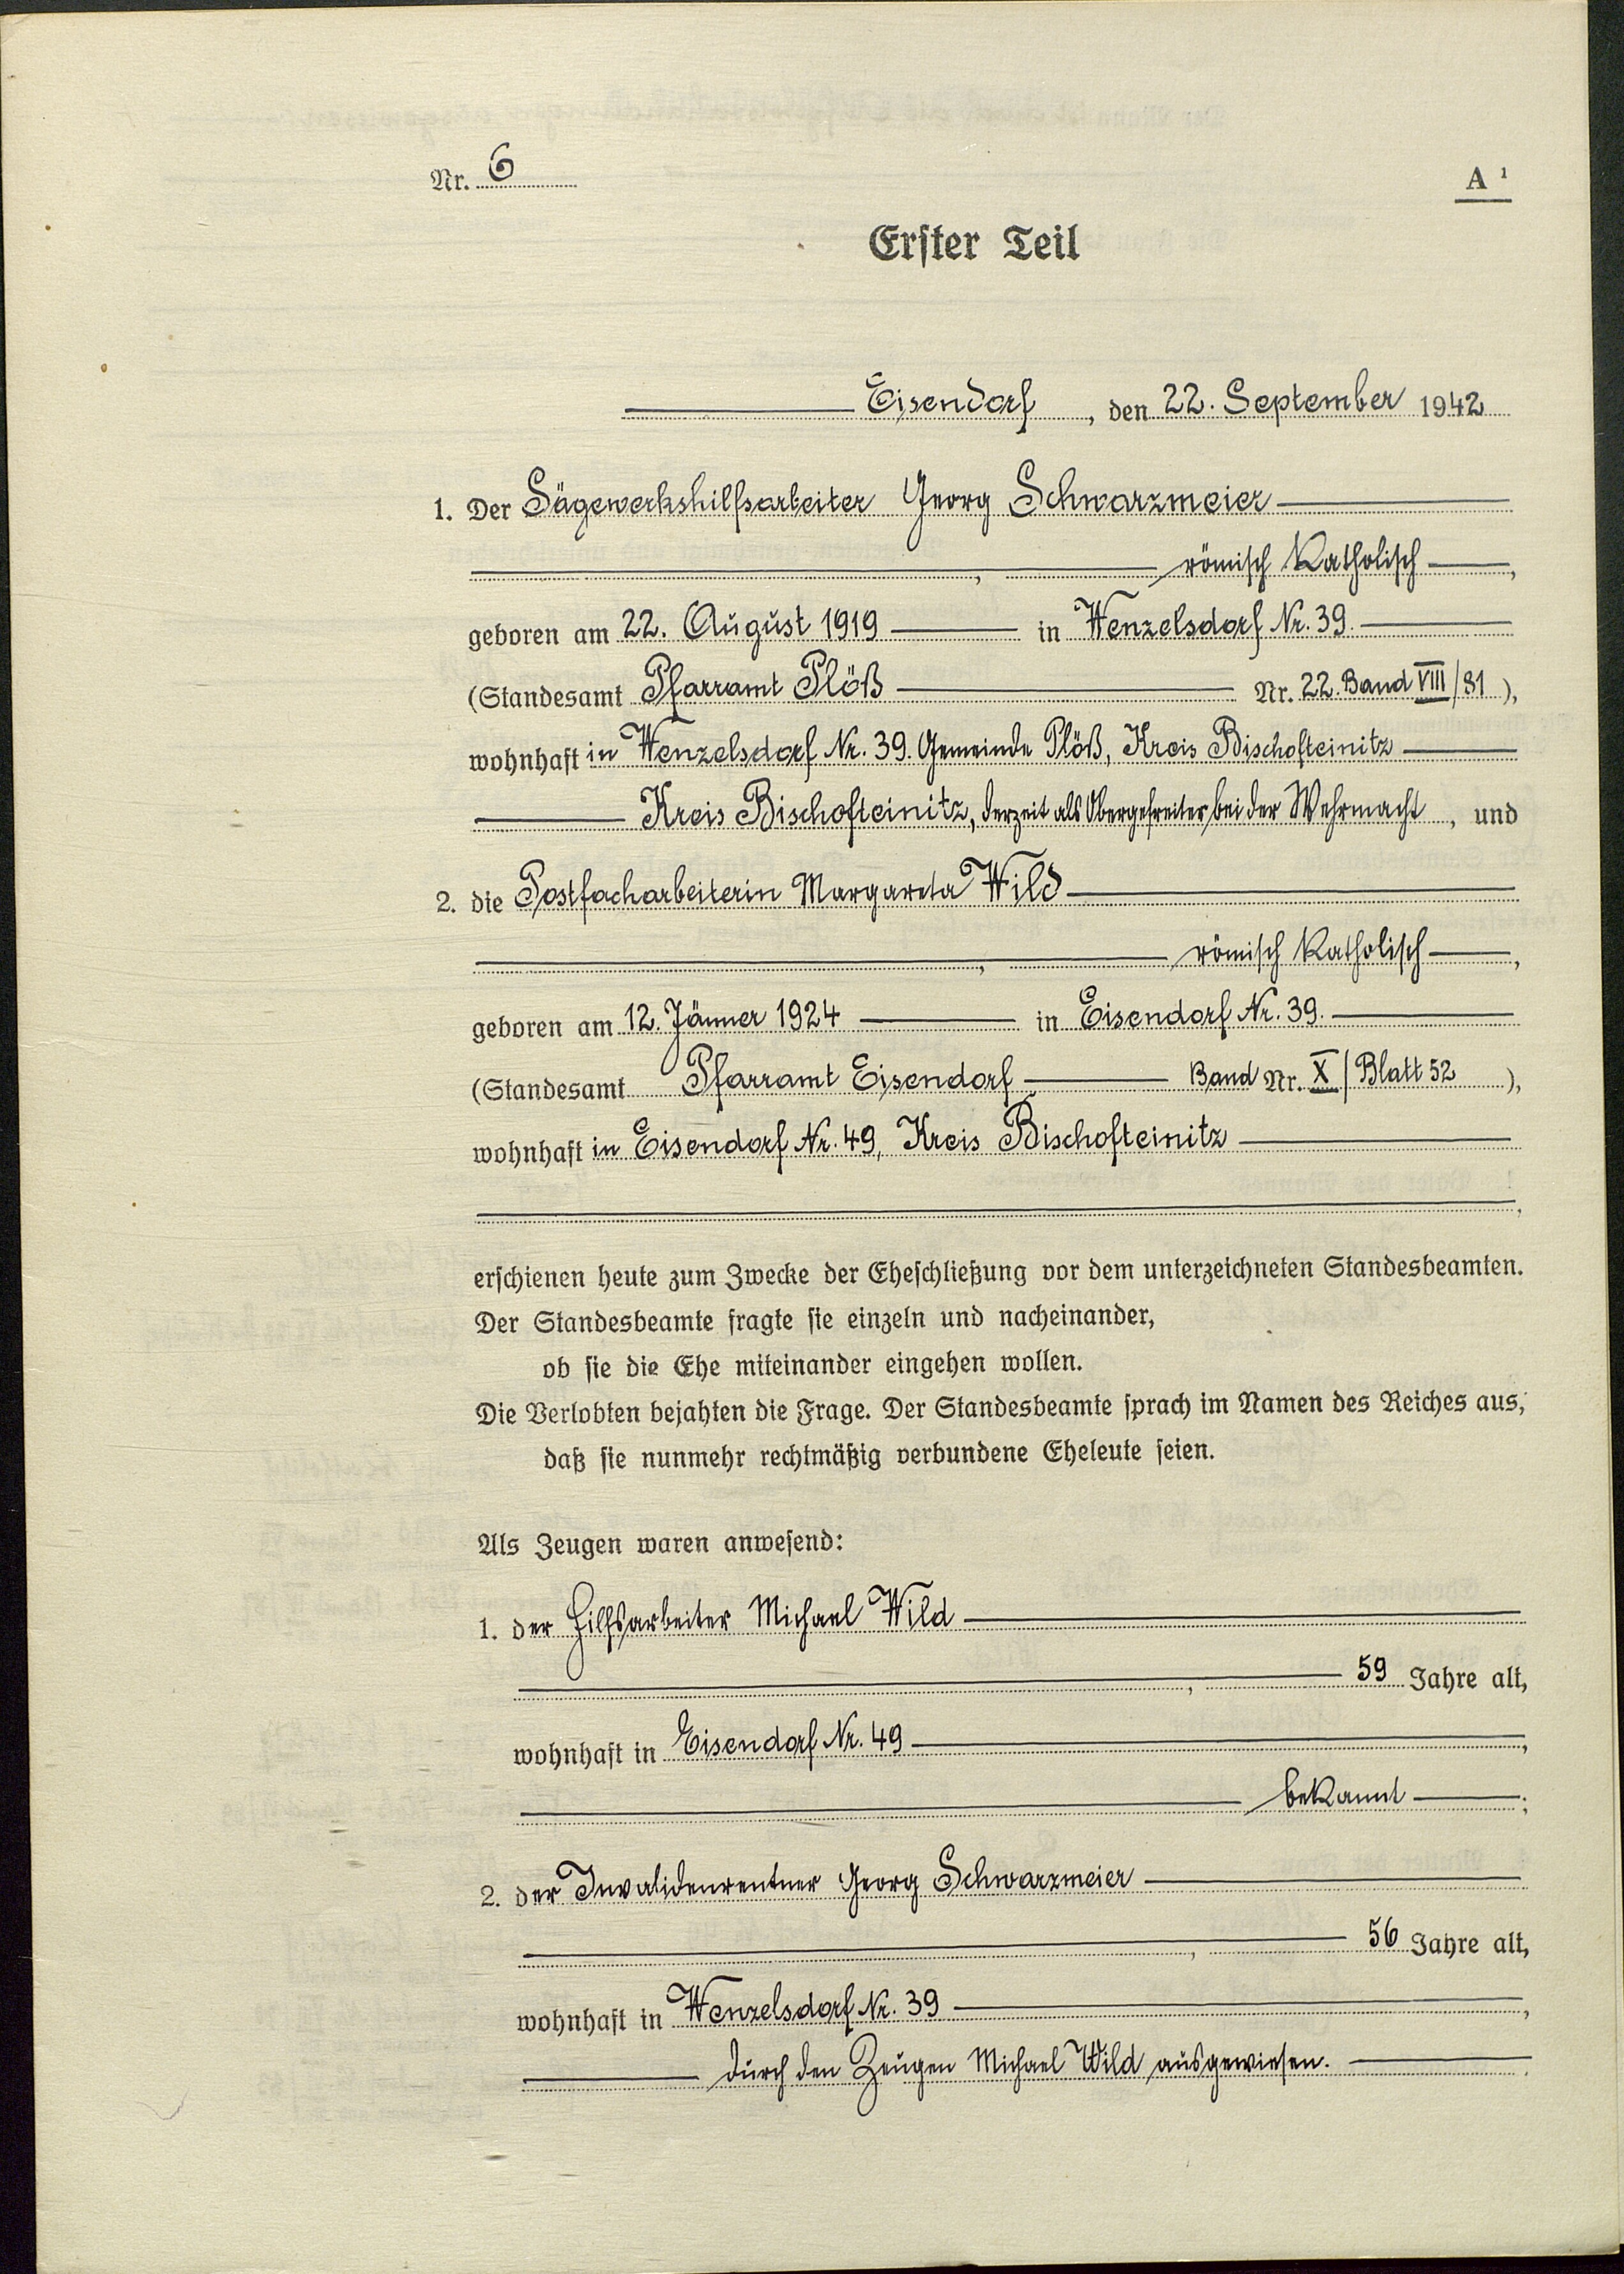 Nr. 6
A 1
Erster Teil
Eisendorf, den 22. September 1942
1. Der Sägewerkshilfsarbeiter Georg Schwarzmeier
, römisch Katholisch,
geboren am 22. August 1919 in Wenzelsdorf Nr. 39.
(Standesamt Pfarramt Plöß Nr. 22. Band VIII/81),
wohnhaft in Wenzelsdorf Nr. 39. Gemeinde Plöß, Kreis Bischofteinitz
Kreis Bischofteinitz, derzeit als Obergefreiter bei der Wehrmacht, und
2. die Postfacharbeiterin Margareta Wild
, römisch Katholisch,
geboren am 12. Jänner 1924 in Eisendorf Nr. 39.
(Standesamt Pfarramt Eisendorf Band Nr. X/Blatt 52),
wohnhaft in Eisendorf Nr. 49, Kreis Bischofteinitz
,
erschienen heute zum Zwecke der Eheschließung vor dem unterzeichneten Standesbeamten.
Der Standesbeamte fragte sie einzeln und nacheinander,
ob sie die Ehe miteinander eingehen wollen.
Die Verlobten bejahten die Frage. Der Standesbeamte sprach im Namen des Reiches aus,
daß sie nunmehr rechtmäßig verbundene Eheleute seien.
Als Zeugen waren anwesend:
1. der Hilfsarbeiter Michael Wild
, 59 Jahre alt,
wohnhaft in Eisendorf Nr. 49,
bekannt;
2. der Invalidenrentner Georg Schwarzmeier
, 56 Jahre alt,
wohnhaft in Wenzelsdorf Nr. 39,
durch den Zeugen Michael Wild ausgewiesen.